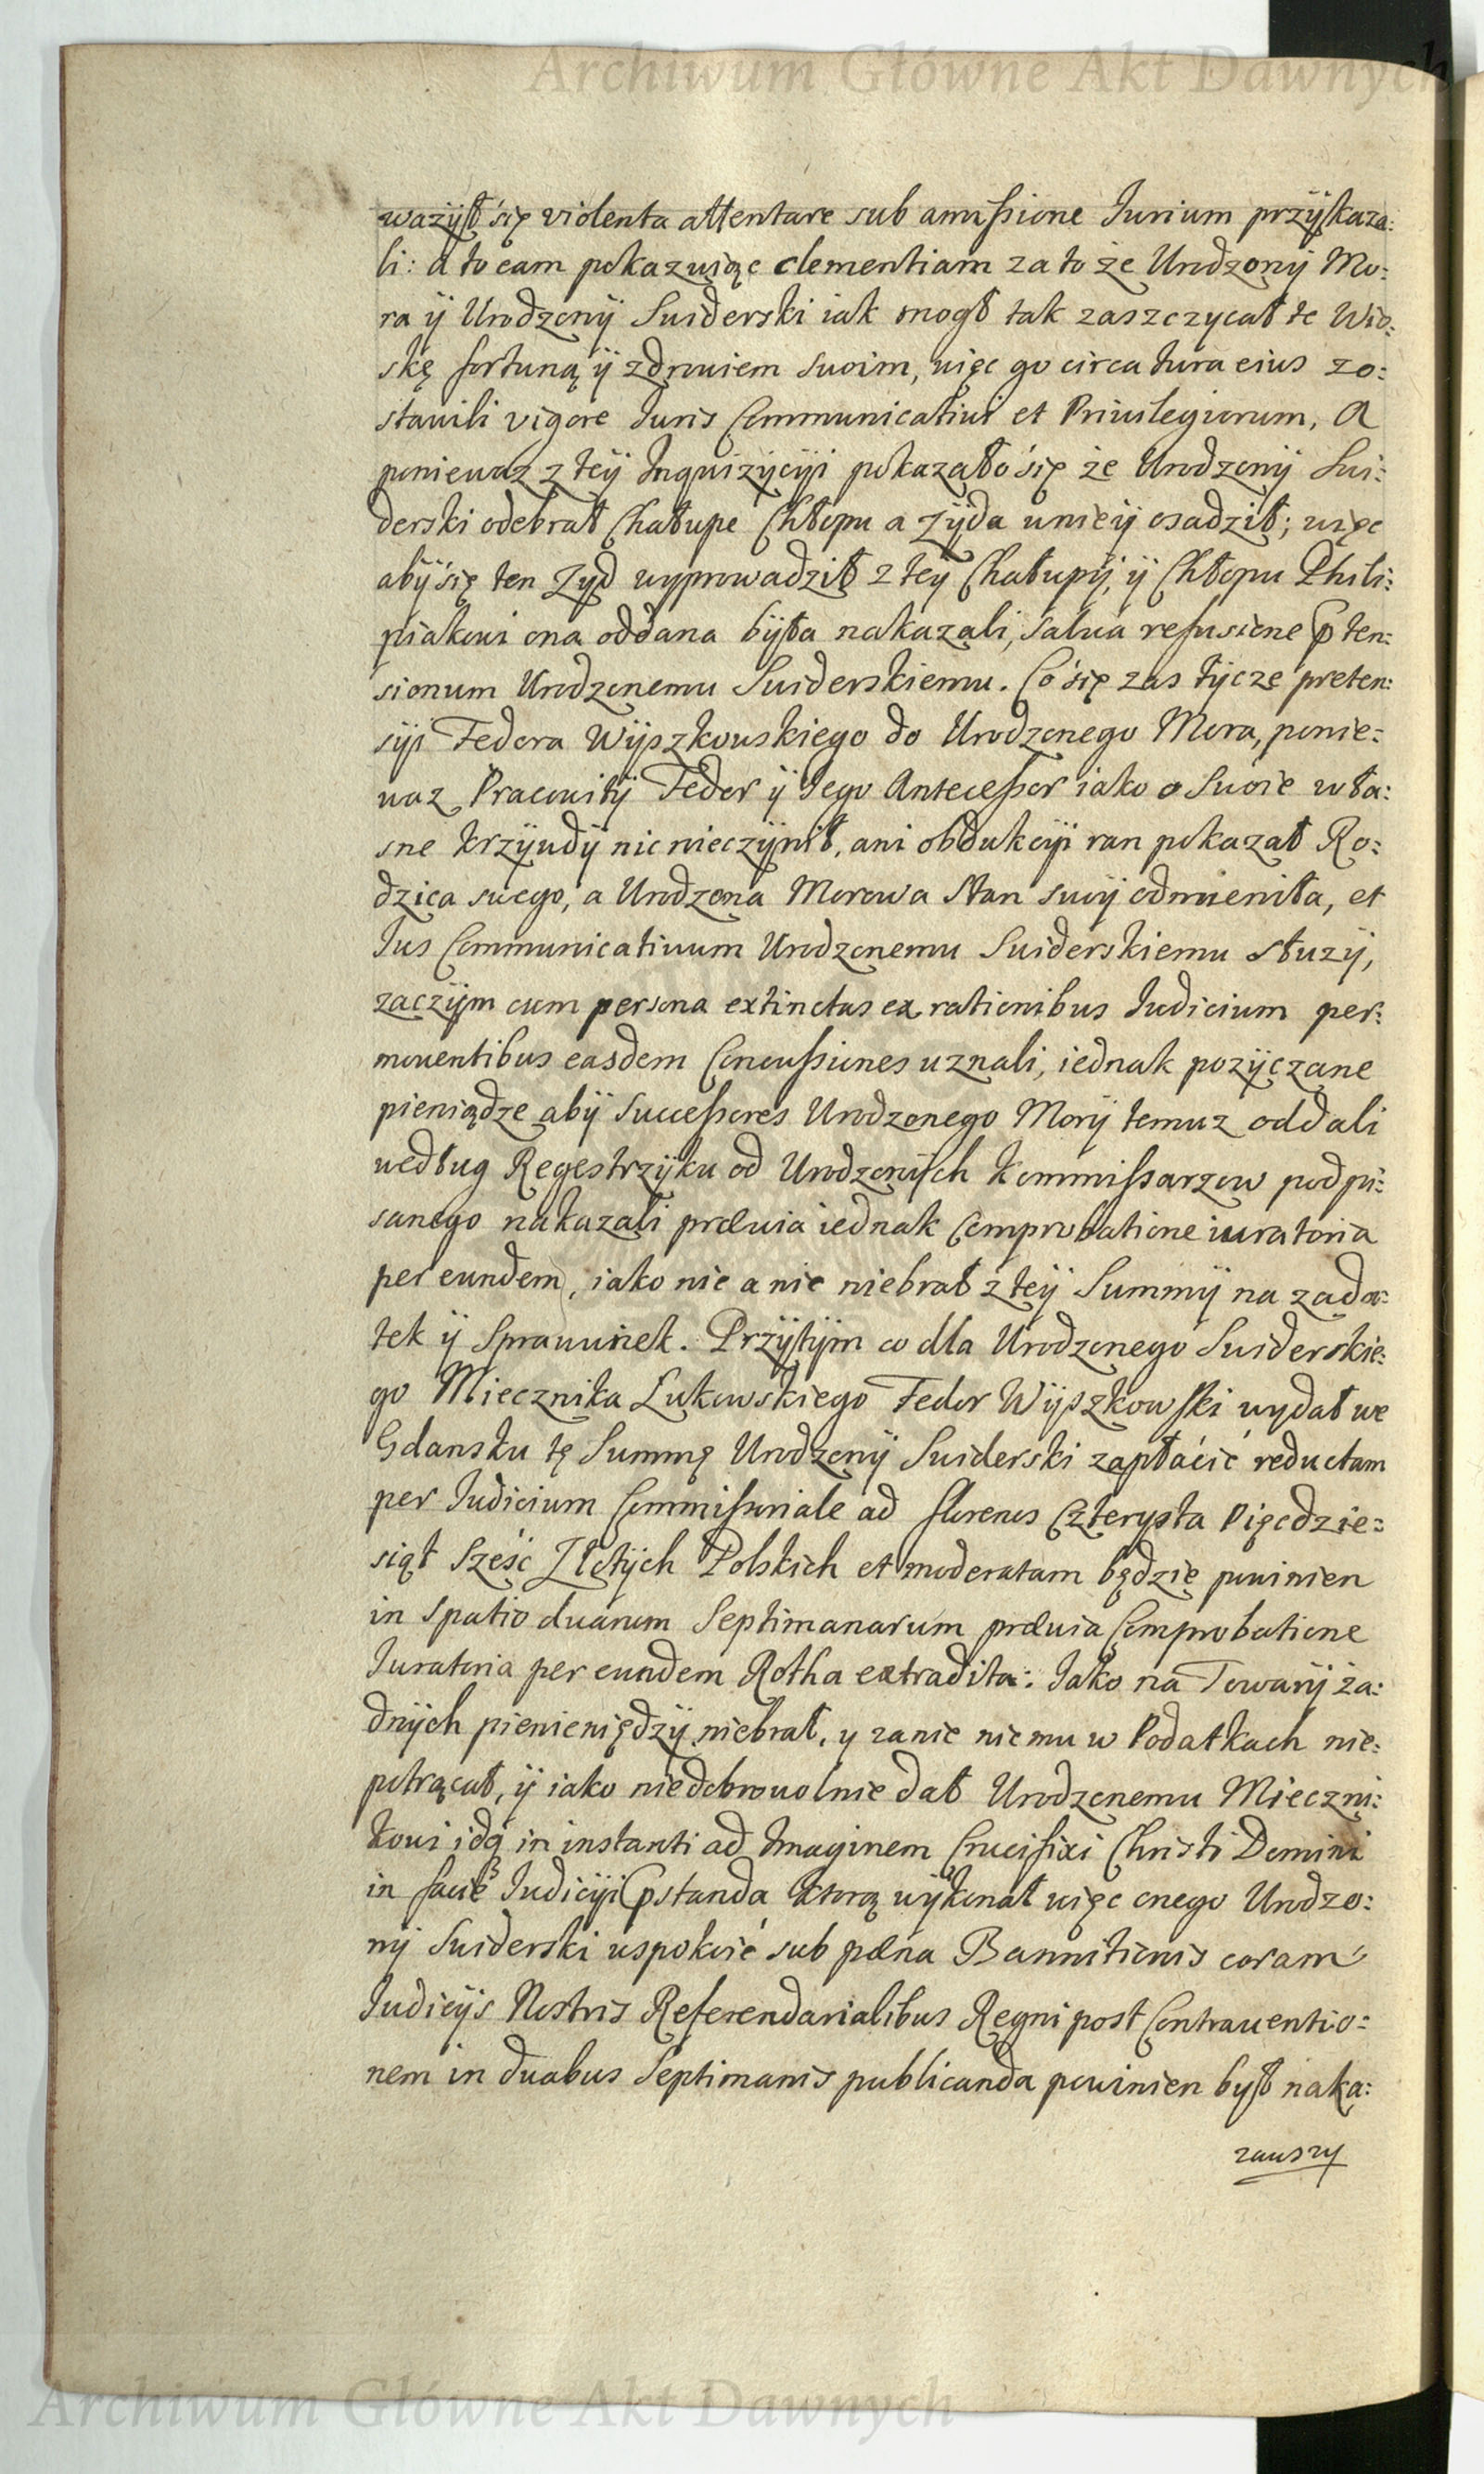 Archiwum Główne Akt Dawnych
ważÿł się violenta attentare sub amissione Iurium przÿkaza:
li: a to eam pokazuiąc clementiam za to że Urodzonÿ Mo:
ra ÿ Urodzonÿ Suiderski iak mogł tak zaszczycał te Wio:
skę fortuną ÿ zdrowiem swoim, więc go circa Iura eius zo:
stawili vigore Iuris Communicatiui et Priuilegiorum, A
poniewaz z teÿ Inquizÿcÿi pokazało się że Urodzonÿ Sui:
derski odebrał Chałupe Chłopu a Zÿda w nieÿ osadził; więc
abÿ się ten Zyd wyprowadził z teÿ Chałupÿ, ÿ Chłopu Phili:
piakowi ona oddana bÿła nakazali, salua refusione pten:
sionum Urodzonemu Suiderskiemu. Co się zas tÿcze preten:
sÿi Fedora Wÿszkowskiego do Urodzonego Mora, ponie:
waz Pracowitÿ Fedor ÿ Iego Antecessor iako o Swoie wła:
sne krzÿwdÿ nic nieczÿnił, ani obdukcÿi ran pokazał Ro:
dzica swego, a Urodzona Morowa Stan swoÿ odmieniła, et
Ius Communicatiuum Urodzonemu Suiderskiemu słuzÿ,
zaczÿm cum persona extinctas ex rationibus Iudicium per:
mouentibus easdem Concussiones uznali, iednak pozÿczane
pieniądze abÿ Successores Urodzonego Morÿ temuz oddali
według Regestrzÿku od Urodzonÿch Kommissarzow podpi:
sanego nakazali præuia iednak Comprobatione iuratoria
per eundem, iako nic a nic niebrał z teÿ Summÿ na zada:
tek ÿ Sprawunek. Przÿtÿm co dla Urodzonego Suiderskie:
go Miecznika Łukowskiego Fedor Wÿszkowski wydał we
Gdansku tę Summę Urodzonÿ Suiderski zapłacić reductam
per Iudicium Commissoriale ad florenos Czterysta Pięcdzie:
siąt Sześć Złotÿch Polskich et moderatam będzie powinien
in spatio duarum Septimanarum præuia Comprobatione
Iuratoria per eundem Rotha extradita: Iako na Towarÿ ża:
dnÿch pienieniędzÿ niebrał, y zanie nie mu w Podatkach nie:
potrącał, ÿ iako niedobrowolnie dał Urodzonemu Mieczni:
kowi idq in instanti ad Imaginem Crucifixi Christi Domini
in facie Iudicÿi pstanda ktorą wÿkonał więc onego Urodzo:
nÿ Suiderski uspokoić sub pæna Bannitionis coram
Iudicÿs Nostris Referendarialibus Regni post Contrauentio:
nem in duabus Septimanis publicanda powinien był naka:
zawszy
Archiwum Główne Akt Dawnych